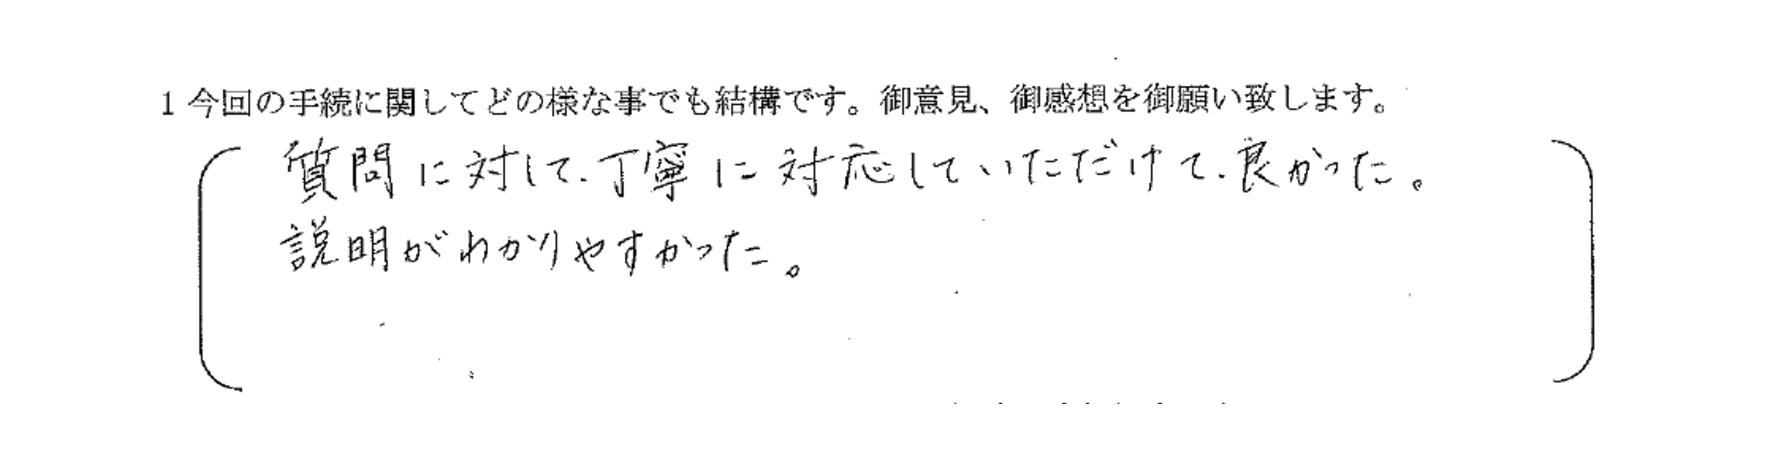 1 今回の手続に関してどの様な事でも結構です。御意見、御感想を御願い致します。
質問に対して、丁寧に対応していただけて、良かった。
説明がわかりやすかった。